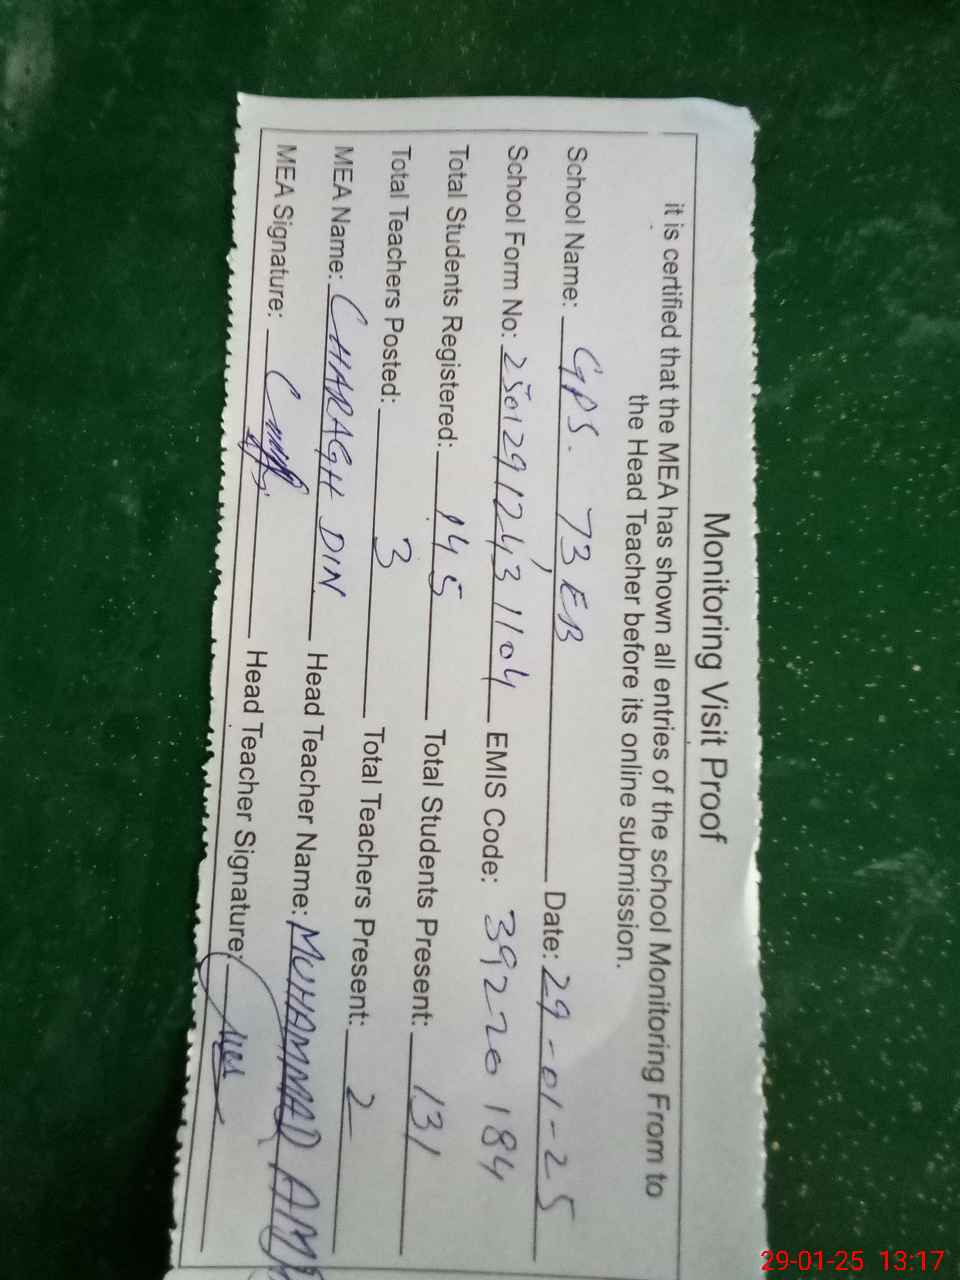 Monitoring Visit Proof
it is certified that the MEA has shown all entries of the school Monitoring From to
the Head Teacher before its online submission.
School Name: GPS. 73 EB Date: 29-01-25
School Form No: 25012912431104 EMIS Code: 39220184
Total Students Registered: 145 Total Students Present: 131
Total Teachers Posted: 3 Total Teachers Present: 2
MEA Name: CHARAGH DIN Head Teacher Name: MUHAMMAD
MEA Signature: Head Teacher Signature:
29-01-25 13:17